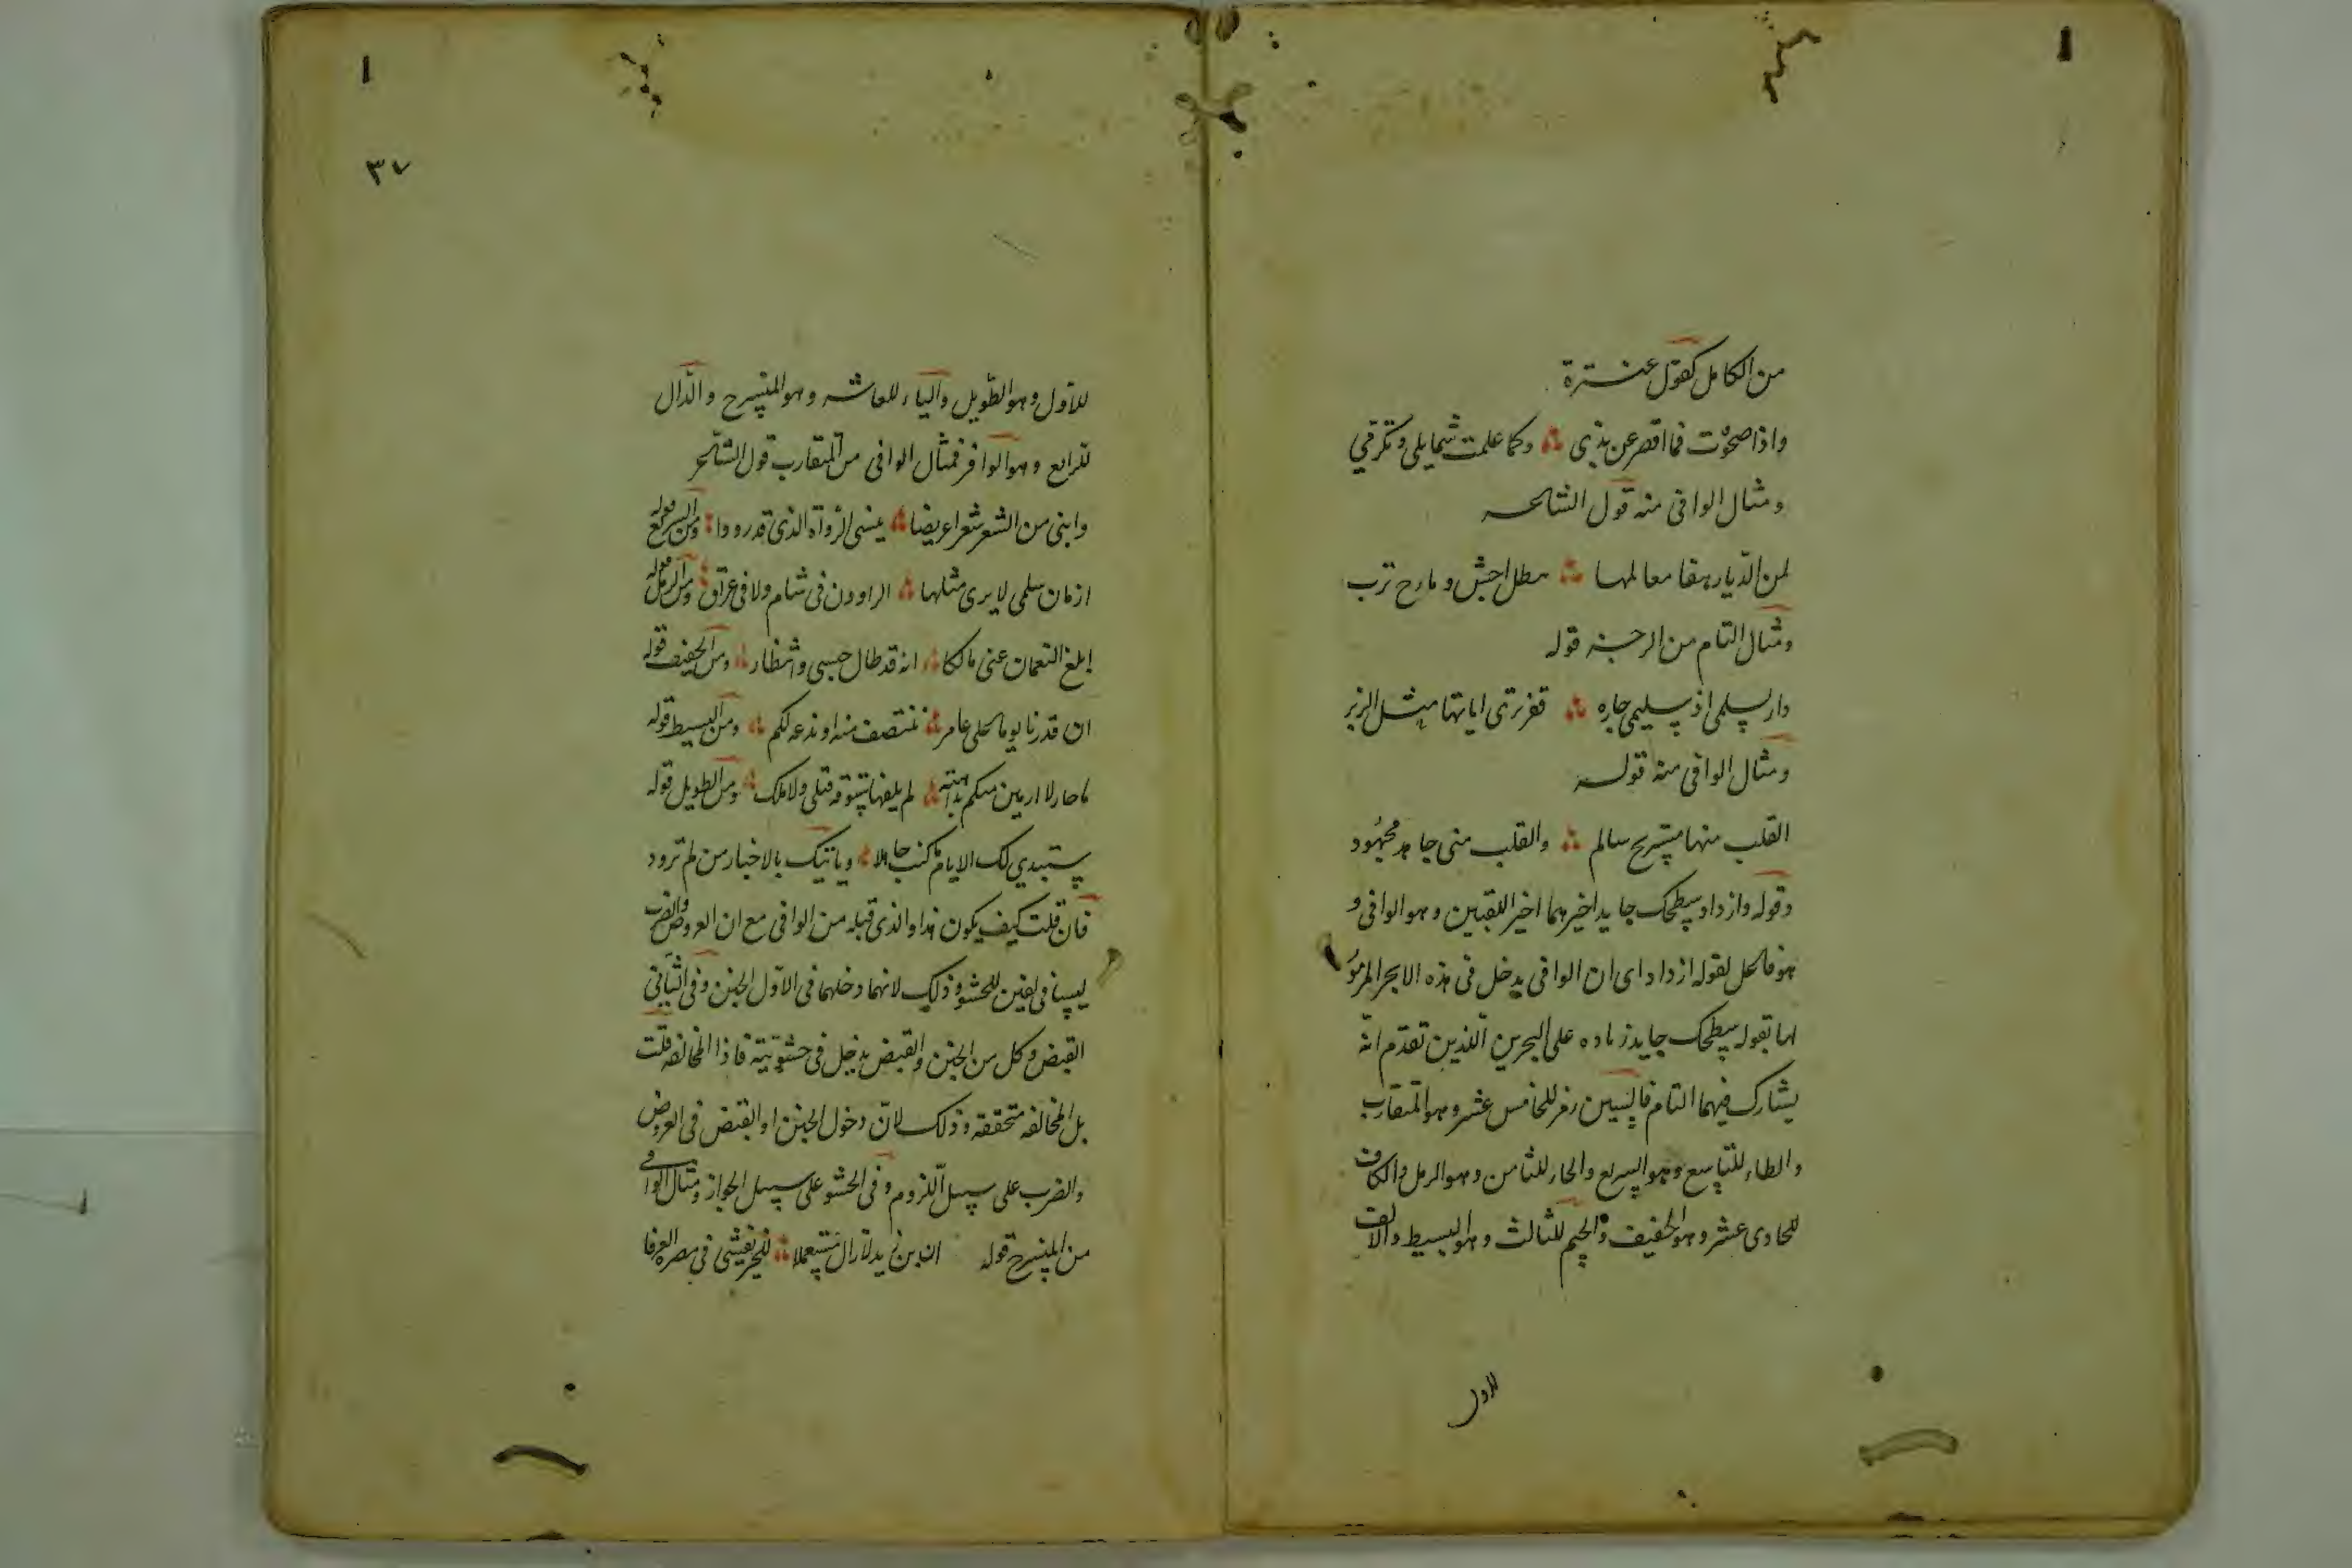 من الكامل كقول عنترة
واذا صحوت فما اقصر عن ندى وكما علمت شمايلى وتكرمي
ومثال الوافى منه قول الشاعر
لمن الديار عفا معالمها هطل اجش وبارح ترب
ومثال التام من الرجز قوله
دار لسلمى اذ سليمى جاره قفر ترى اياتها مثل الزبر
ومثال الوافى منه قوله
القلب منها مستريح سالم والقلب منى جاهد مجهود
وقوله وازداد سطحك جايد اخيرهما اخير اللقبين وهو الوافى و
هو فاعل لقوله ازداد اى ان الوافى يدخل فى هذه الابحر المرموز
لها بقوله سطحك جايد زياده على البحرين اللذين تقدم انه
يشارك فيهما التام فالسين رمز للخامس عشر وهو المتقارب
والطاء للتاسع وهو السريع والحاء للثامن وهو الرمل والكاف
للحادى عشر وهو الخفيف والجيم للثالث وهو البسيط والالف
للاول
٣٧
للاول وهو الطويل والياء للعاشر وهو المنسرح والدال
للرابع وهو الوافر فمثال الوافى من المتقارب قول الشاعر
وابنى من الشعر شعرا عويصا ينسى الرواة الذى قد رووا ومن السريع قوله
ازمان سلمى لا يرى مثلها الراوون فى شام ولا فى عراق ومن الرمل قوله
ابلغ النعمان عنى مالكا انه قد طال حبسى وانتظار ومن الخفيف قوله
ان قدرنا يوما على عامر ننتصف منه او ندعه لكم ومن البسيط قوله
يا حار لا ارمين منكم بداهية لم يلقها سوقة قبلى ولا ملك ومن الطويل قوله
ستبدي لك الايام ما كنت جاهلا وياتيك بالاخبار من لم تزود
فان قلت كيف يكون هذا والذى قبله من الوافى مع ان العروض والضرب
ليسا موافقين للحشو وذلك لانهما دخلهما فى الاول الخبن وفى الثانى
القبض وكل من الخبن والقبض يدخل فى حشو بيته فاذا المخالفه قلت
بل المخالفه متحققه وذلك لان دخول الخبن او القبض فى العروض
والضرب على سبيل اللزوم وفى الحشو على سبيل الجواز ومثال الوافى
من المنسرح قوله ان ابن زيد لا زال مستعملا للخير يفشى فى مصره العرفا